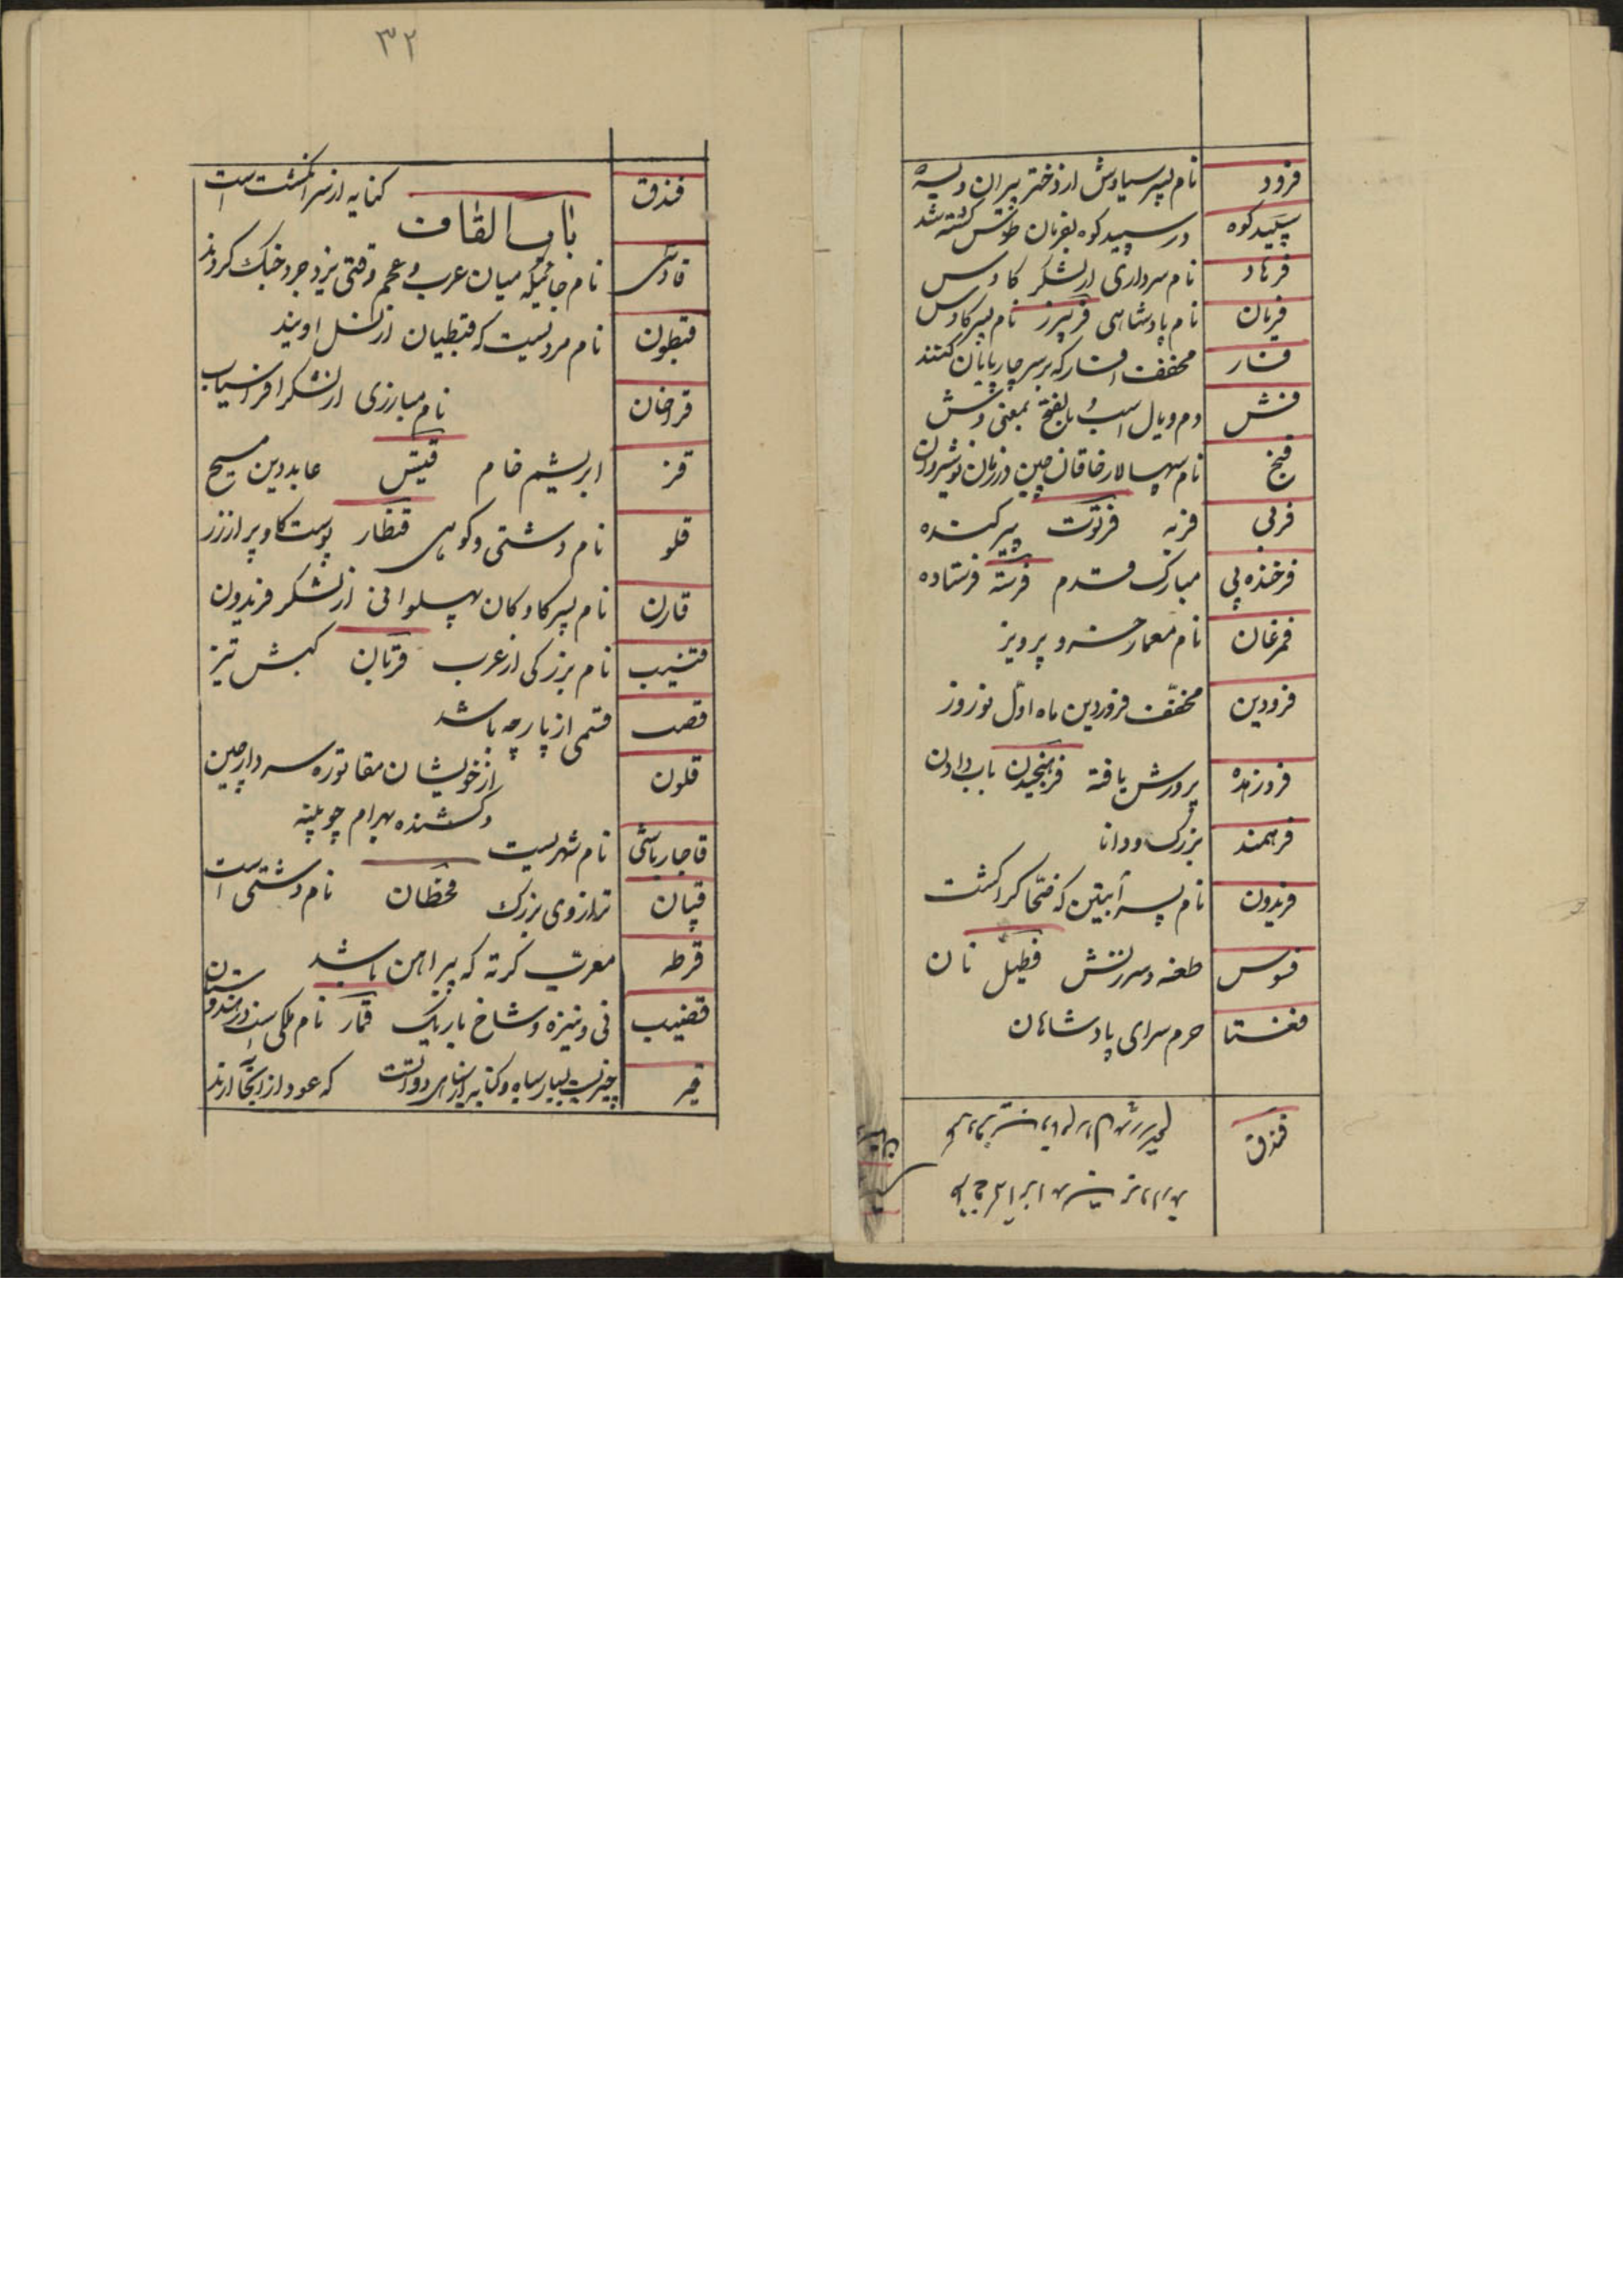 فرود نام پسر سیاوش از دختر پیران ویسه
سپیدکوه در سپید کوه بفرمان طوس کشته شد
فرهاد نام سرداری از لشکر کاوس
فریان نام پادشاهی فریبرز نام پسر کاوس
فسار مخفف افسار که بر سر چارپایان کنند
فش دم و یال اسب و بالفتح بمعنی وش
فنج نام سپهسالار خاقان چین در زمان نوشیروان
فربی فربه فرتوت پیر
فرخنده پی مبارک قدم فرسته فرستاده
فرغان نام معمار خسرو پرویز
فرودین مخفف فروردین ماه اول نوروز
پرورش یافته فرهنجیدن دادن
فرهمند بزرک و دانا
فریدون نام پسر آبتین که ضحاک را کشت
فسوس طعنه و سرزنش نان
فغستا حرم سرای پادشاهان
فندق
۳۲
فندق کنایه از سر انکشت است
باب القاف
قادسی نام جائیکه میان عرب و عجم وقتی یزدجرد جنک کردند
قبطون نام مردیست که قبطیان از نسل اویند
قراخان نام مبارزی از لشکر افراسیاب
قز ابریشم خام قیس عابد دین مسیح
قلو نام دشتی و کوهی قنطار پوست کاو پر از زر
قارن نام پسر کاوکان پهلوانی از لشکر فریدون
قتیب نام بزرکی از عرب قربان کیش تیر
قصب قسمی از پارچه باشد
قلون از خویشان مقاتوره سردار چین
و کشنده بهرام چوبینه
قاجار باشی نام شهریست
قپان ترازوی بزرک قحطان نام دشتی است
قرطه معرب کرته که پیراهن باشد
قضیب نی و نیزه و شاخ باریک قمار نام ملکی است در هندوستان
قیر چیزیست بسیار سیاه و کنایه از سیاهی دواتست که عود از آنجا آرند